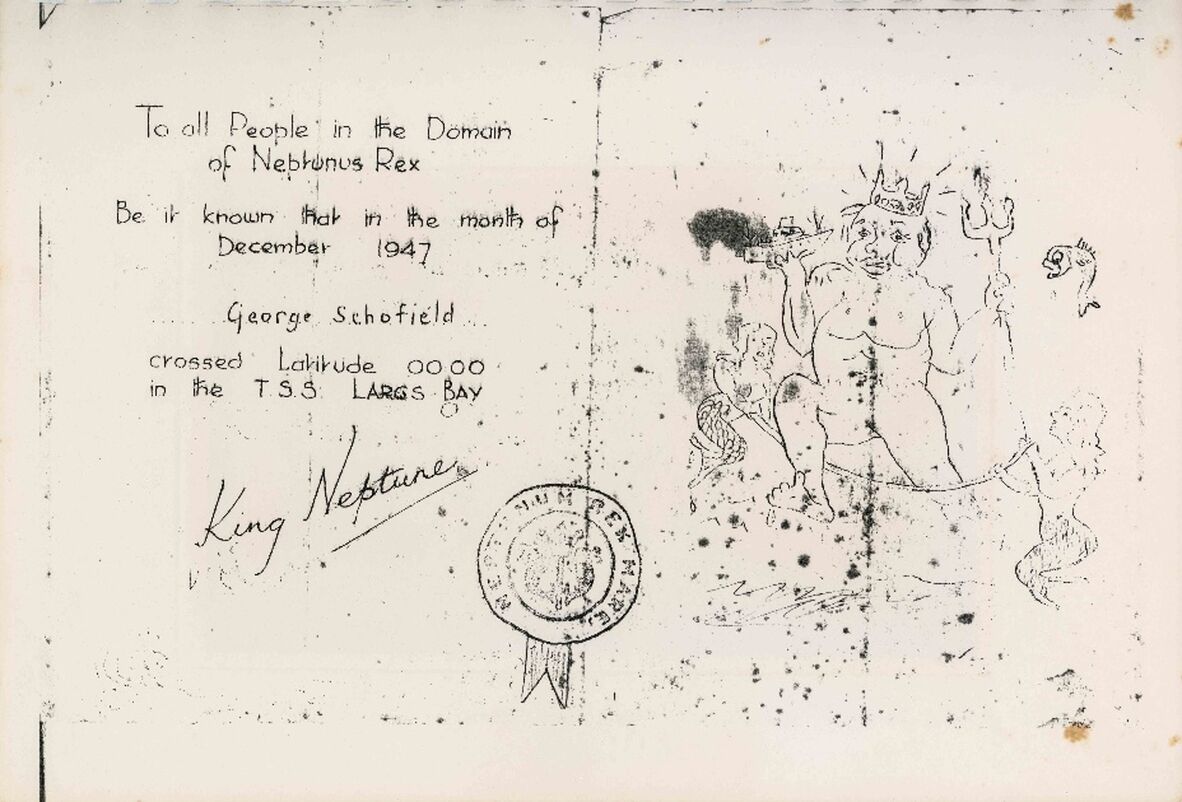 To all People in the Domain
of Neptunus Rex
Be it known that in the month of
December 1947
George Schofield
crossed Latitude 00 00
in the T.S.S. LARGS BAY
King Neptune
NEPTUNUM REX MARE